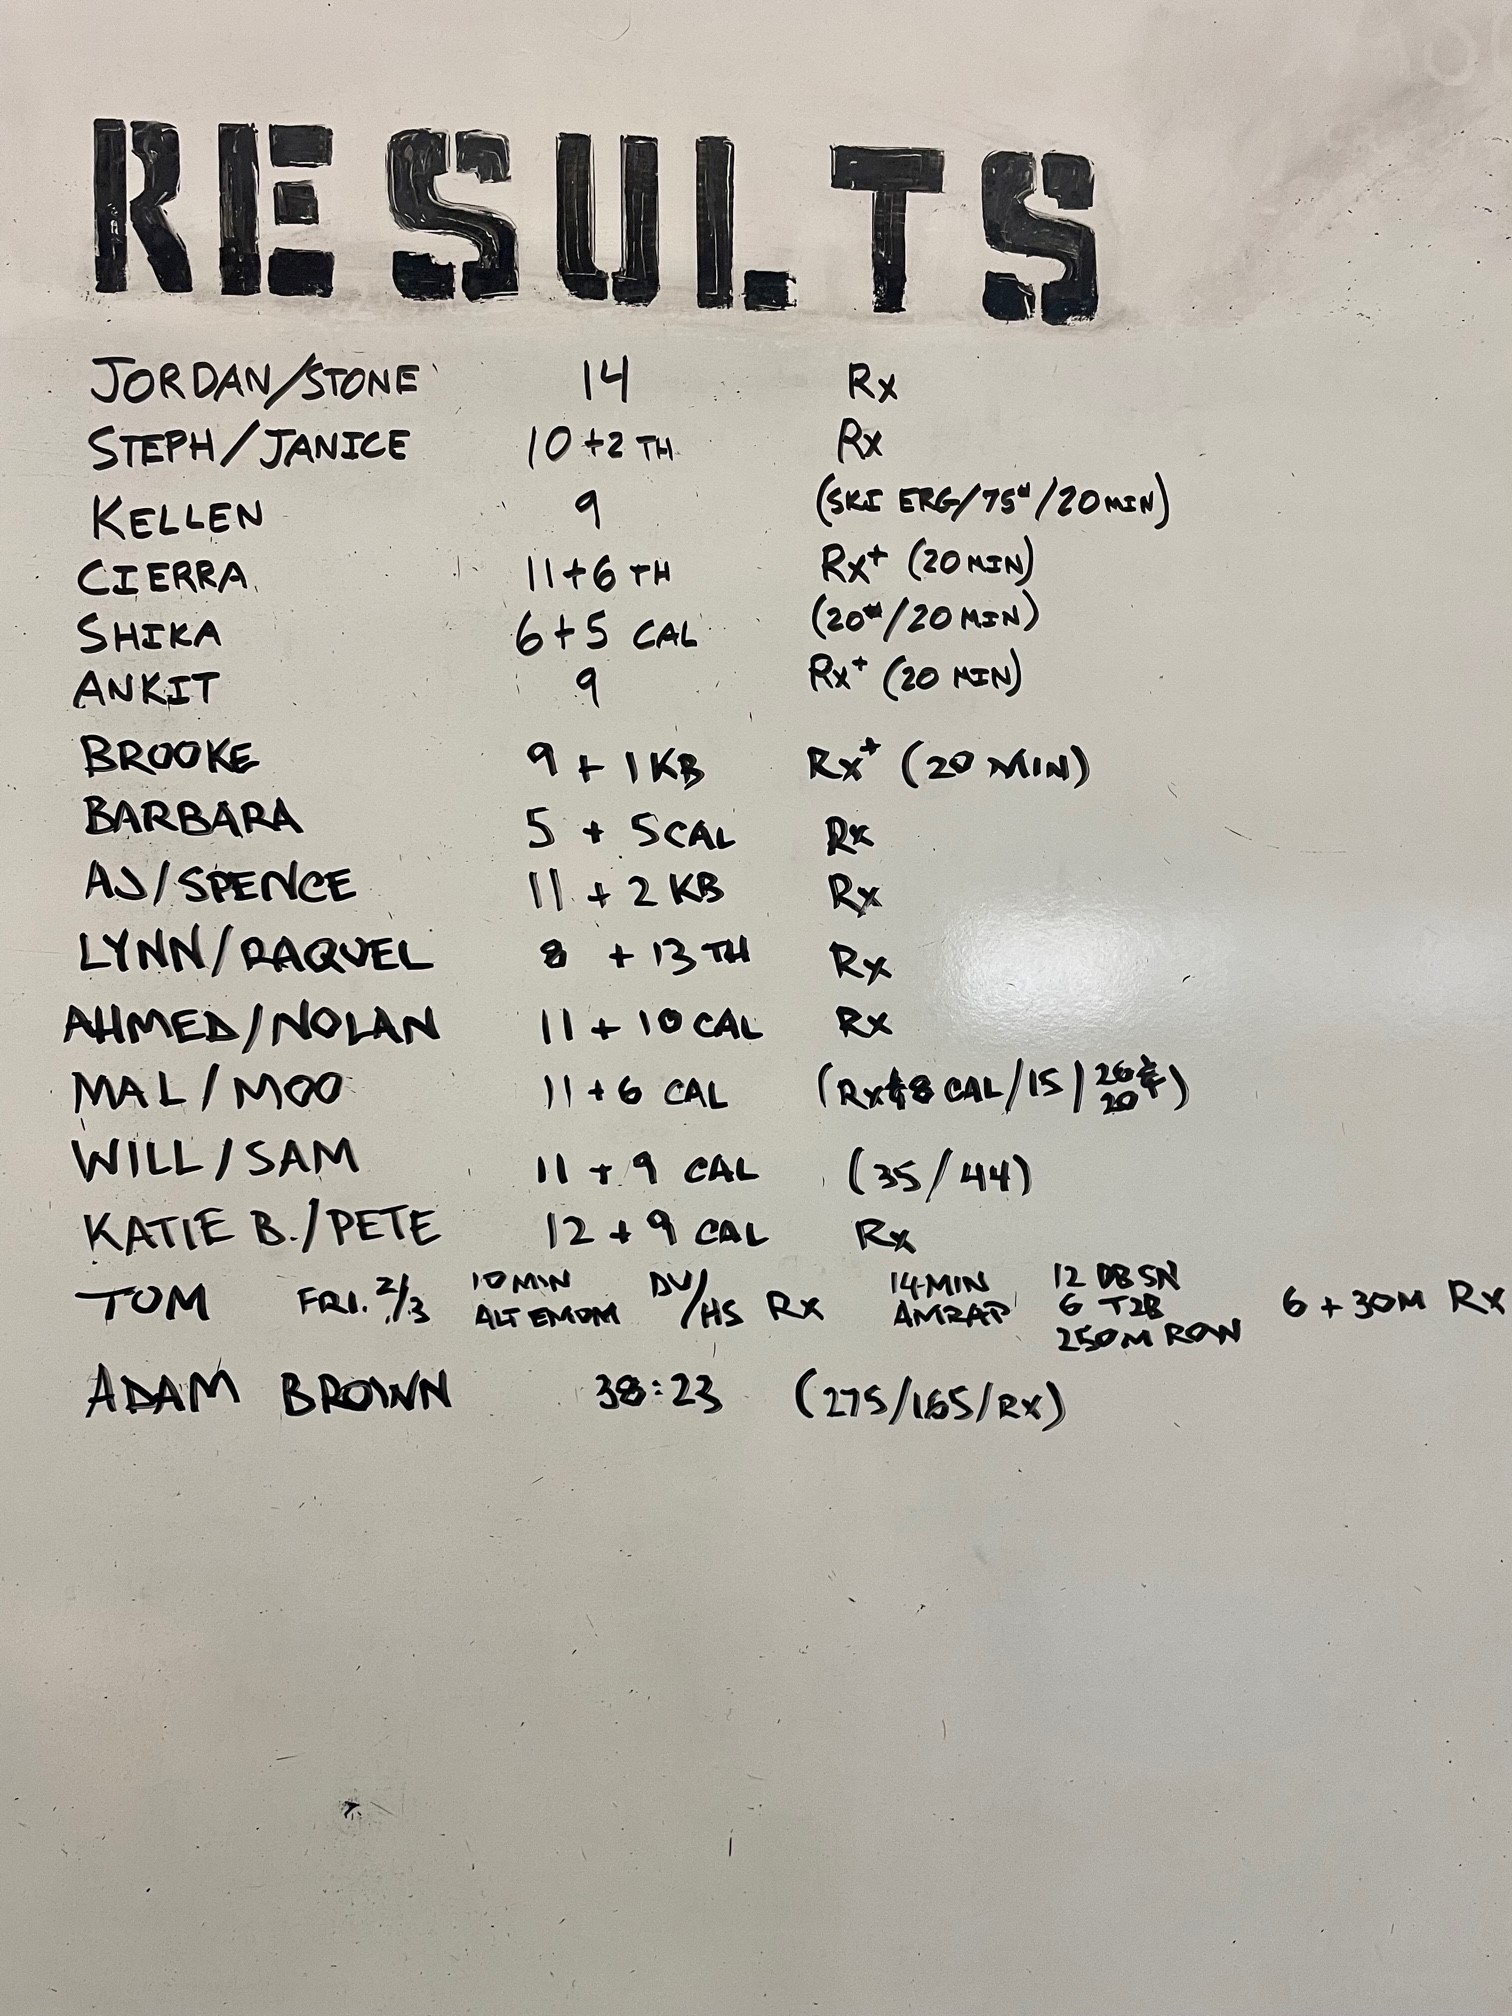 RESULTS
JORDAN/STONE 14 Rx
STEPH/JANICE 10+2 TH Rx
KELLEN 9 (SKI ERG/75#/20 MIN)
CIERRA 11+6 TH Rx+ (20 MIN)
SHIKA 6+5 CAL (20#/20 MIN)
ANKIT 9 Rx+ (20 MIN)
BROOKE 9 + 1 KB Rx+ (20 MIN)
BARBARA 5 + 5 CAL Rx
AJ/SPENCE 11 + 2 KB Rx
LYNN/RAQUEL 8 + 13 TH Rx
AHMED/NOLAN 11 + 10 CAL Rx
MAL/MOO 11+6 CAL CAL/15/ 20
WILL/SAM 11 + 9 CAL (35/44)
KATIE B./PETE 12 + 9 CAL Rx
TOM FRI. 2/3 10 MIN ALT EMOM DU/HS Rx 14 MIN AMRAP 12 DB SN 6 T2B 250M ROW 6 + 30M Rx
ADAM BROWN 38:23 (275/165/Rx)